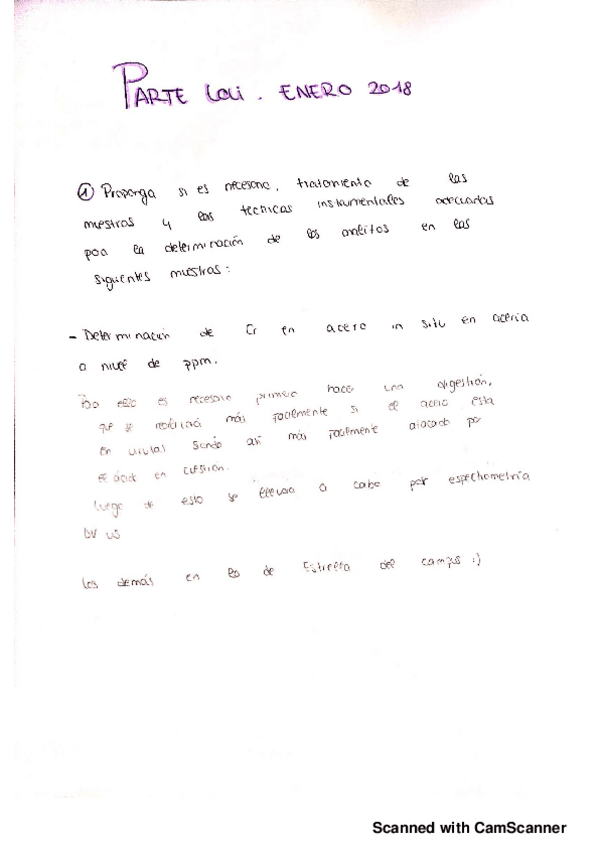 PARTE Loli. ENERO 2018
① Proponga si es necesario, tratamiento de las
muestras y las tecnicas instrumentales adecuadas
para la determinación de los analitos en las
siguientes muestras:
- Determinación de Cr en acero in situ en acería
a nivel de ppm.
Para ello es necesario primero hacer una digestión,
que se realizará más facilmente si el acero esta
en virutas siendo así más facilmente atacado por
el ácido en cuestión.
Luego de esto se llevará a cabo por espectrometría
UV VIS
Los demás en la de Estrella del campus :)
Scanned with CamScanner